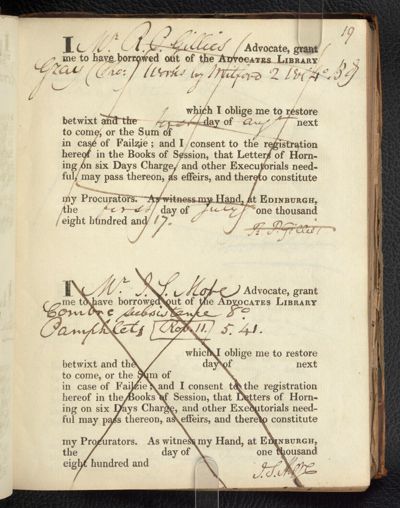 19
I Mr. R. P. Gillies Advocate, grant
me to have borrowed out of the ADVOCATES LIBRARY
Gray (Tho:) Works by Mitford 2 Vols 4o.
which I oblige me to restore
betwixt and the first day of augt next
to come, or the Sum of
in case of Failzie; and I consent to the registration
hereof in the Books of Session, that Letters of Horn-
ing on six Days Charge, and other Executorials need-
ful, may pass thereon, as effeirs, and thereto constitute
my Procurators. As witness my Hand, at EDINBURGH,
the first day of July one thousand
eight hundred and 17.
R. P. Gillies
I Mr. J. S. More Advocate, grant
me to have borrowed out of the ADVOCATES LIBRARY
Combre subsistance 8o
Pamphlets [Rob. 11.] 5. 41.
which I oblige me to restore
betwixt and the day of next
to come, or the Sum of
in case of Failzie; and I consent to the registration
hereof in the Books of Session, that Letters of Horn-
ing on six Days Charge, and other Executorials need-
ful may pass thereon, as effeirs, and thereto constitute
my Procurators. As witness my Hand, at EDINBURGH,
the day of one thousand
eight hundred and
J. S. More